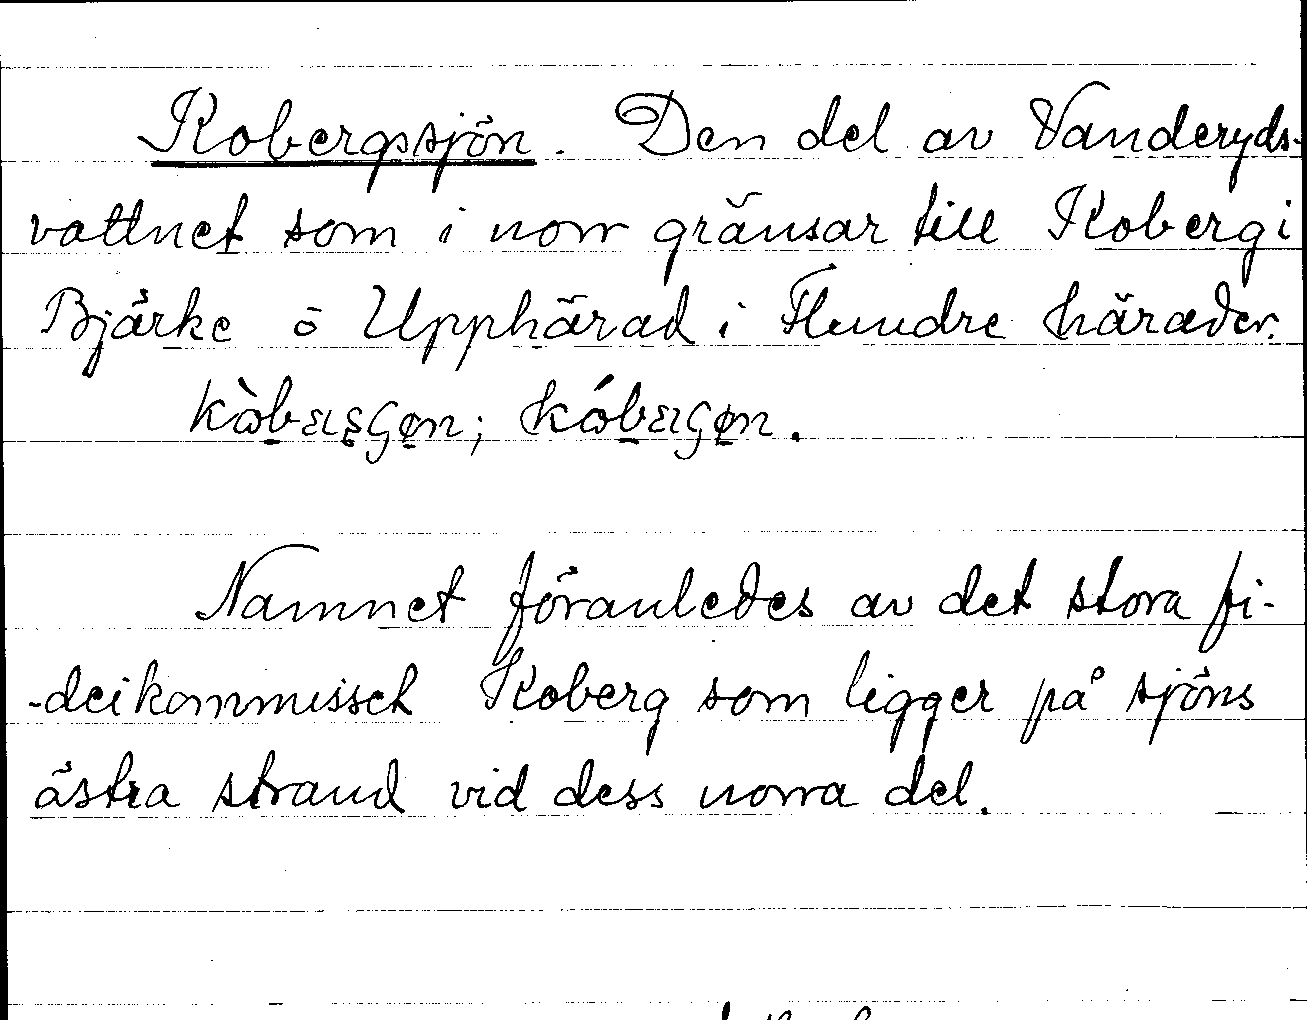 Kobergssjön. Den del av Vanderyds-
vattnet som i norr gränsar till Koberg i
Bjärke o Upphärad i Flundre härader.
Namnet föranledes av det stora fi-
-deikommisset Koberg som ligger på sjöns
östra strand vid dess norra del.